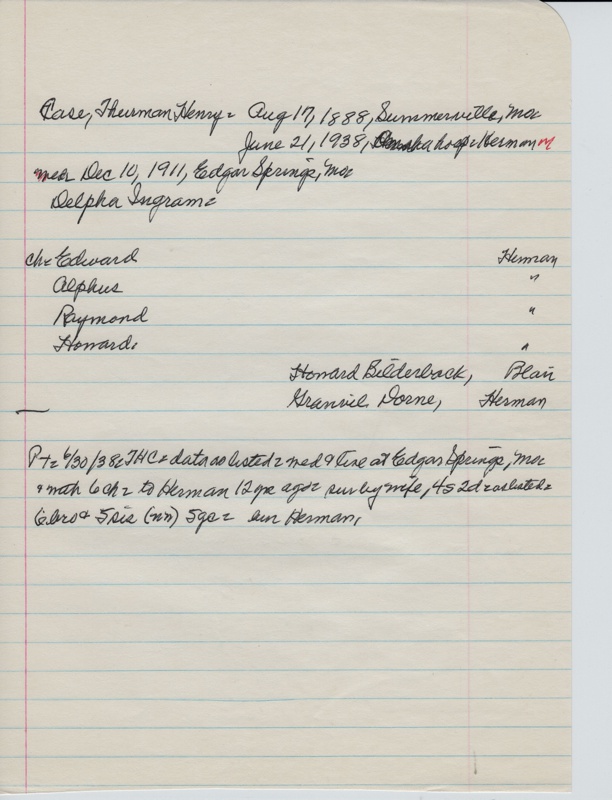 Case, Thurman Henry = Aug 17, 1888, Summerville, Mo=
June 21, 1938, Omaha hosp = Herman
Dec 10, 1911, Edgar Springs, Mo=
Delpha Ingram =
ch = Edward Herman
Alphus "
Raymond "
Howard. "
Howard Bilderback, Blair
Granvil Dorne, Herman
P-T = 6/30/38 = THC = data as listed = med & live at Edgar Springs, Mo=
& with 6 ch = to Herman 12 yrs ago = sur by wife, 4s 2d = as listed =
6 bros & 5 sis (nn) 5gc = bur Herman,